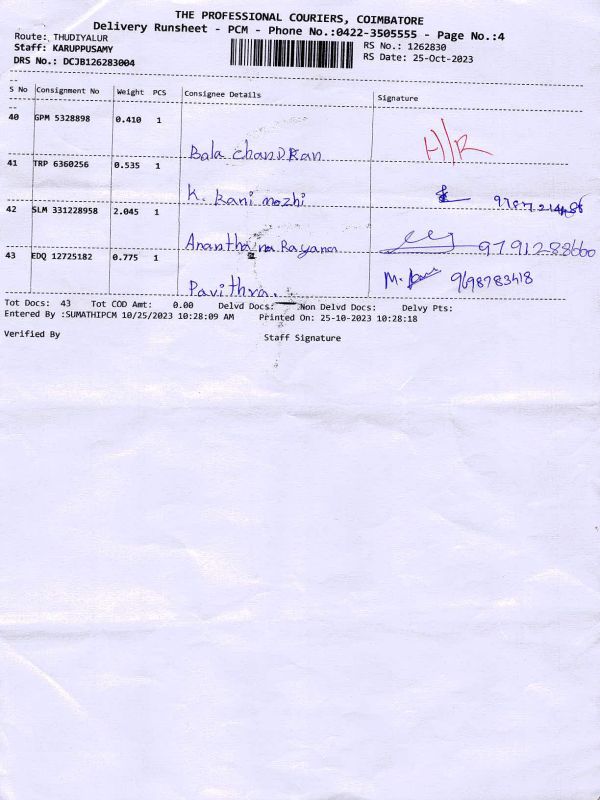 THE PROFESSIONAL COURIERS, COIMBATORE
Delivery Runsheet - PCM - Phone No.:0422-3505555 - Page No.:4
Route: THUDIYALUR
Staff: KARUPPUSAMY RS No.: 1262830
DRS No.: DCJB126283004 RS Date: 25-Oct-2023
S No Consignment No Weight PCS Consignee Details Signature
40 GPM 5328898 0.410 1 Bala chandran H/R
41 TRP 6360256 0.535 1 K. Kani mozhi
42 SLM 331228958 2.045 1 Anantha na Rayana 9791288660
43 EDQ 12725182 0.775 1 Pavithra. M. 9698783418
Tot Docs: 43 Tot COD Amt: 0.00 Delvd Docs: Non Delvd Docs: Delvy Pts:
Entered By :SUMATHIPCM 10/25/2023 10:28:09 AM Printed On: 25-10-2023 10:28:18
Verified By Staff Signature